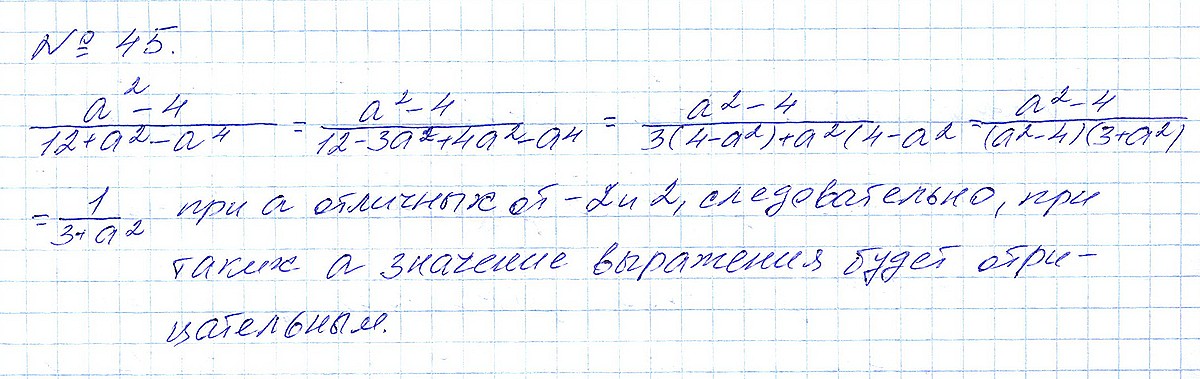 № 45.
a²-4 / 12+a²-a⁴ = a²-4 / 12-3a²+4a²-a⁴ = a²-4 / 3(4-a²)+a²(4-a² = a²-4 / (a²-4)(3+a²)
= 1 / 3+a² при a отличных от -2 и 2, следовательно, при
таких a значение выражения будет отри-
цательным.